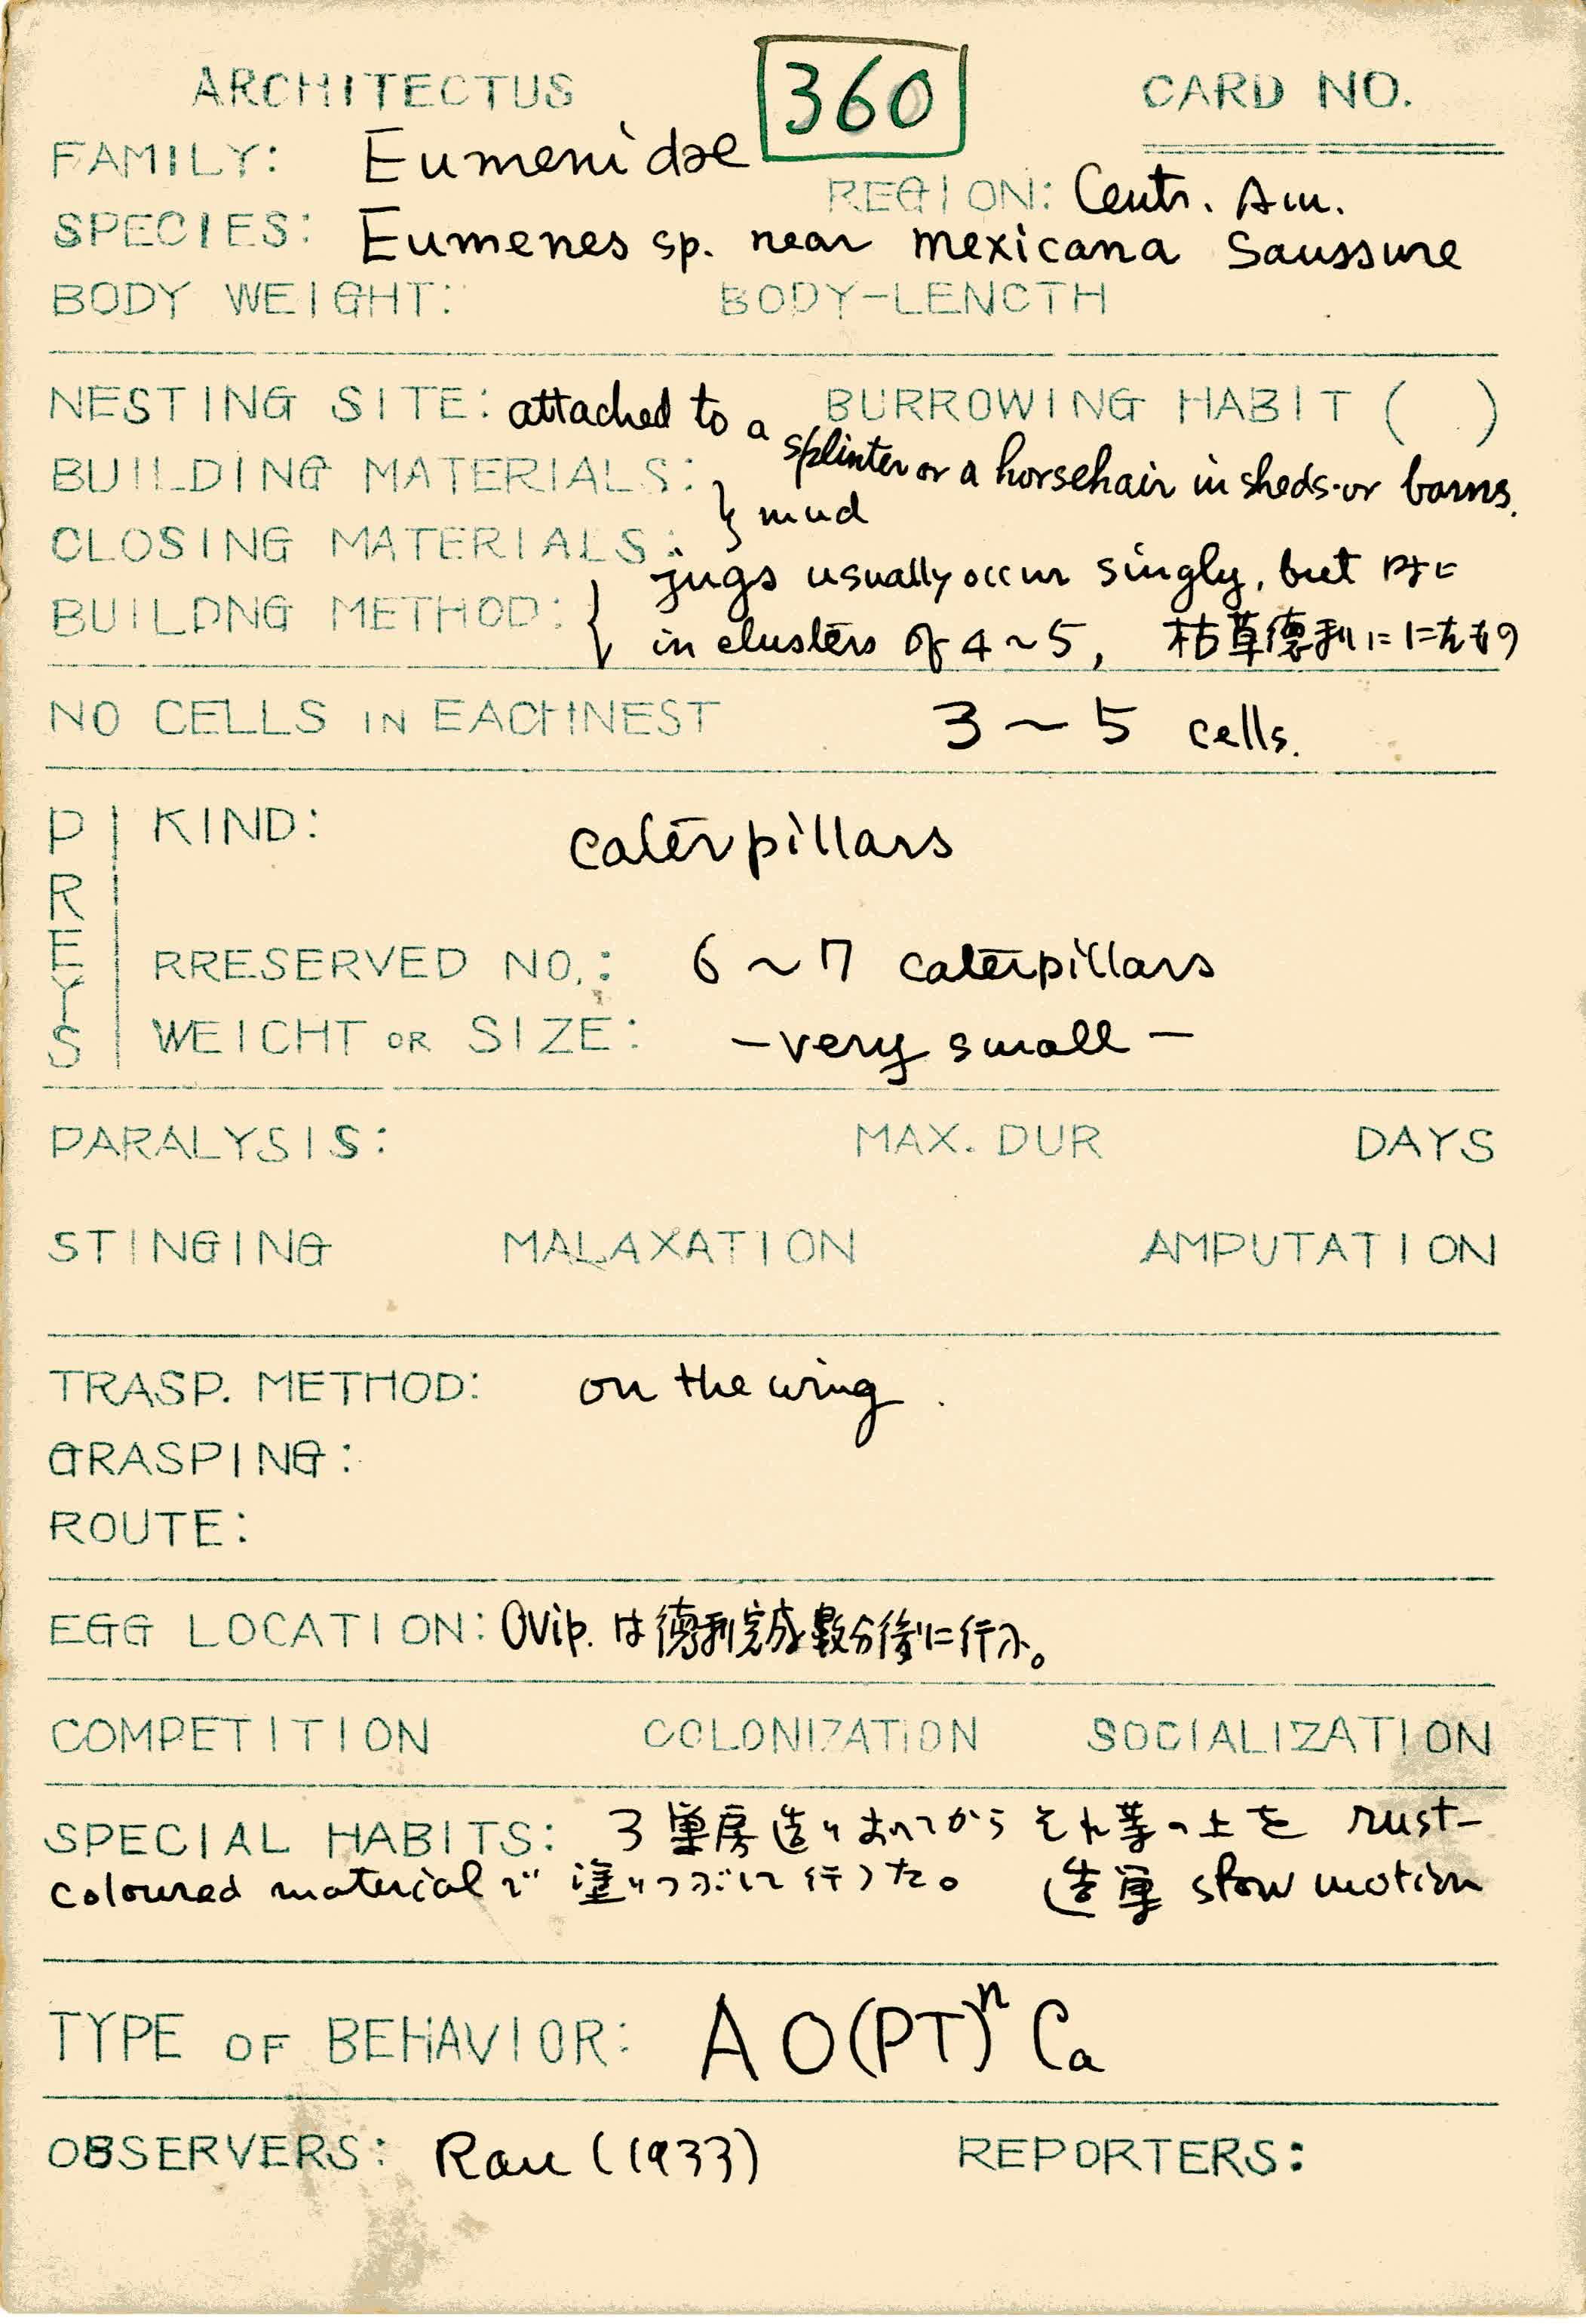 ARCHITECTUS 360 CARD NO.
FAMILY: Eumenidae
REGION: Centr. Am.
SPECIES: Eumenes sp. near mexicana Saussure
BODY WEIGHT: BODY-LENCTH
NESTING SITE: attached to a splinter or a horsehair in sheds or barns.
BURROWING HABIT ( )
BUILDING MATERIALS:
} mud
CLOSING MATERIALS:
BUILDNG METHOD: { jugs usually occur singly, but 時に
in clusters of 4~5, 枯草徳利に似たもの
NO CELLS IN EACHNEST 3~5 cells.
PREYS
KIND: caterpillars
RRESERVED NO.: 6~7 caterpillars
WEICHT OR SIZE: -very small-
PARALYSIS: MAX. DUR DAYS
STINGING MALAXATION AMPUTATION
TRASP. METHOD: on the wing.
GRASPING:
ROUTE:
EGG LOCATION: Ovip. は徳利完成数分後に行う。
COMPETITION COLONIZATION SOCIALIZATION
SPECIAL HABITS: 3巣房造りおわってから それ等の上を rust-
coloured material で 塗りつぶして行った。 造巣 slow motion
TYPE OF BEHAVIOR: A O(PT)ⁿ Ca
OBSERVERS: Rau (1933) REPORTERS: